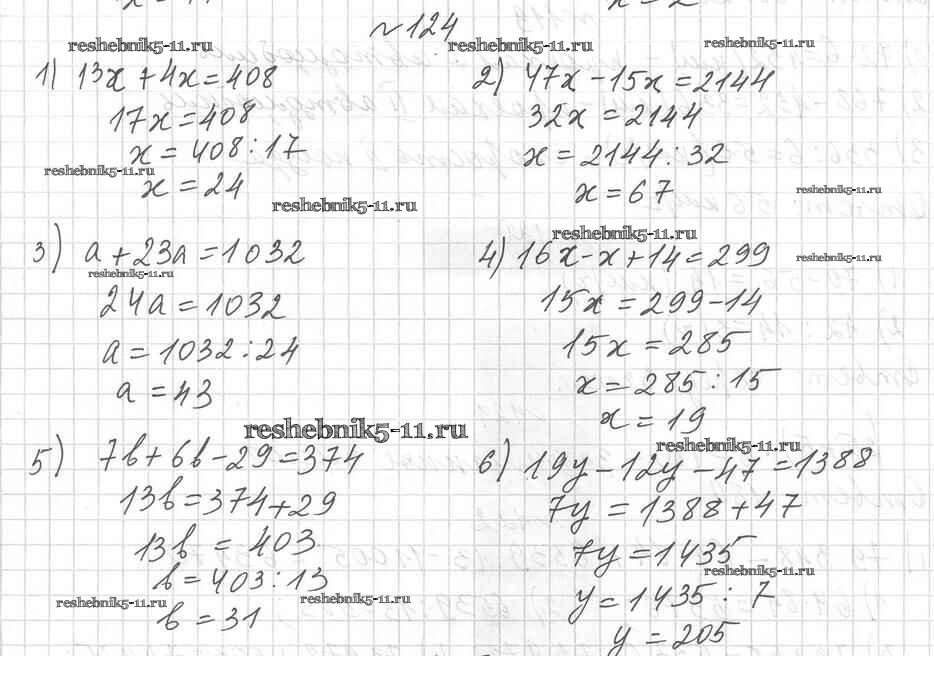 №124
reshebnik5-11.ru reshebnik5-11.ru reshebnik5-11.ru
1) 13x + 4x = 408
17x = 408
x = 408 : 17
reshebnik5-11.ru
x = 24
reshebnik5-11.ru
2) 47x - 15x = 2144
32x = 2144
x = 2144 : 32
x = 67
reshebnik5-11.ru
3) a + 23a = 1032
reshebnik5-11.ru
24a = 1032
a = 1032 : 24
a = 43
reshebnik5-11.ru
4) 16x - x + 14 = 299
reshebnik5-11.ru
15x = 299 - 14
15x = 285
x = 285 : 15
x = 19
reshebnik5-11.ru
5) 7b + 6b - 29 = 374
13b = 374 + 29
13b = 403
b = 403 : 13
reshebnik5-11.ru reshebnik5-11.ru
b = 31
reshebnik5-11.ru
6) 19y - 12y - 47 = 1388
7y = 1388 + 47
7y = 1435
reshebnik5-11.ru
y = 1435 : 7
y = 205